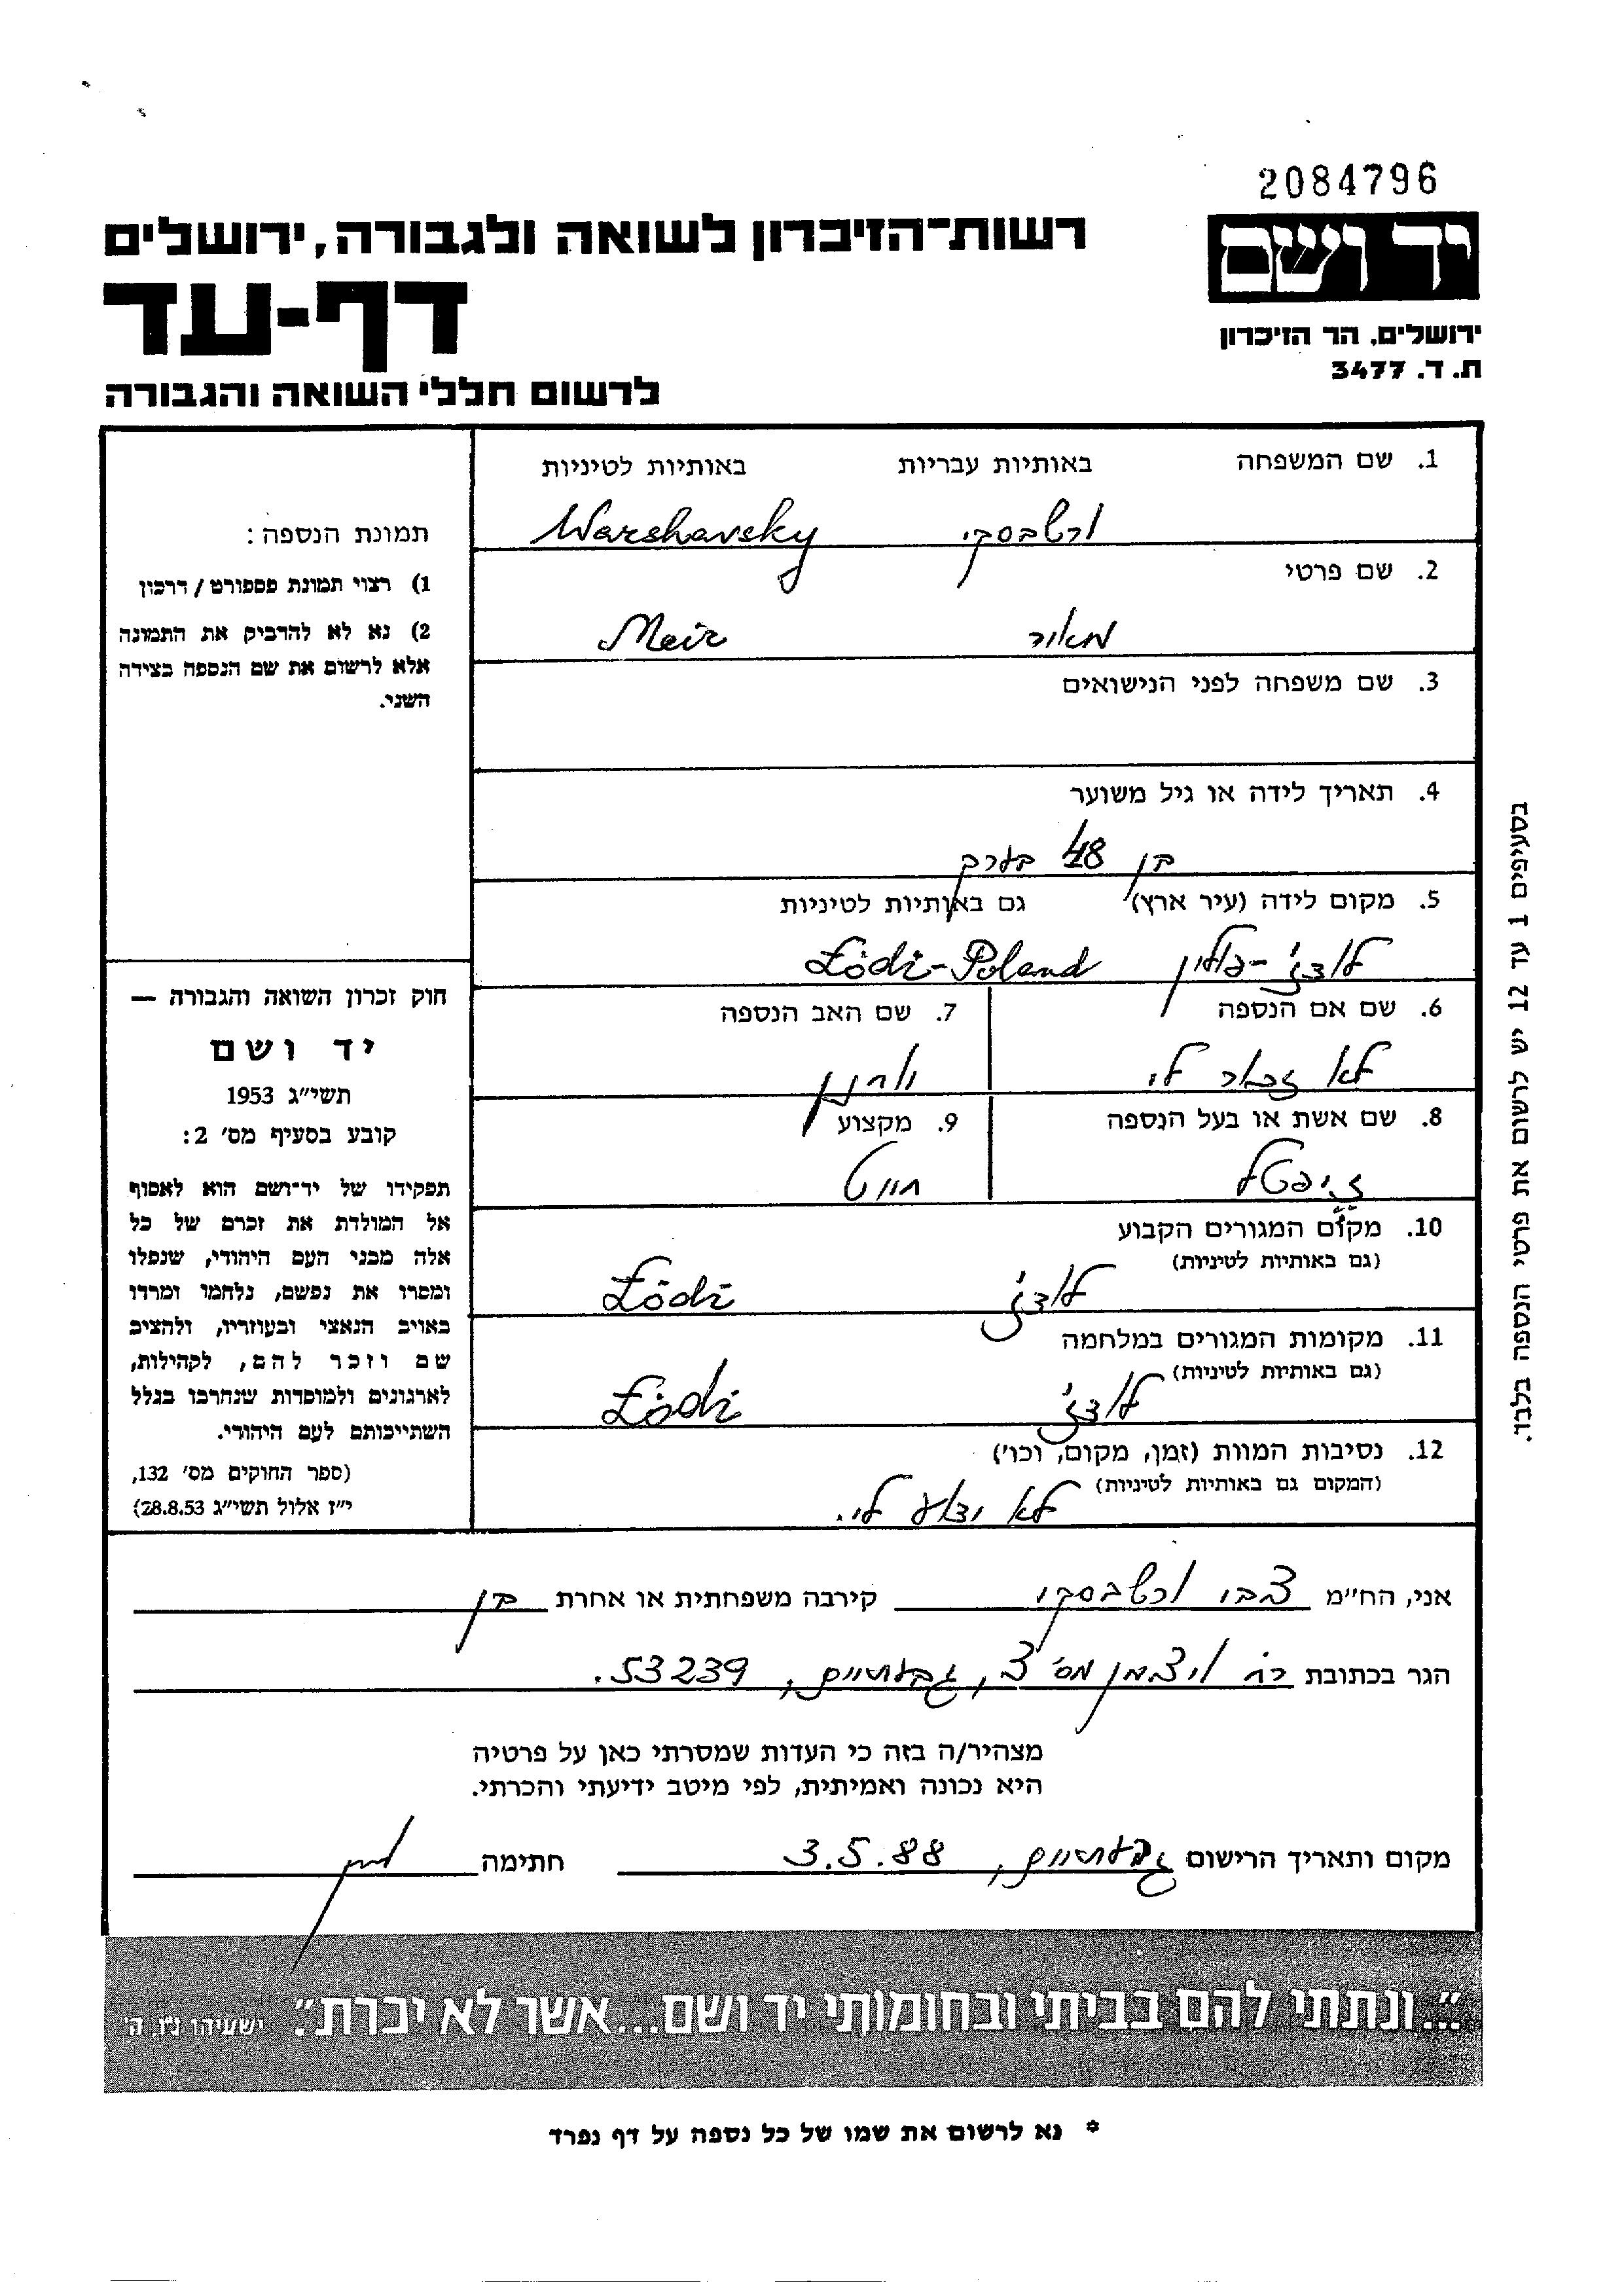 2084796
יד ושם
ירושלים, הר הזיכרון
ת. ד. 3477
רשות־הזיכרון לשואה ולגבורה, ירושלים
דף-עד
לרשום חללי השואה והגבורה
1. שם המשפחה באותיות עבריות באותיות לטיניות
ורשבסקי Warshavsky
2. שם פרטי
מאיר Meir
3. שם משפחה לפני הנישואים
4. תאריך לידה או גיל משוער
בן 48 בערך
5. מקום לידה (עיר ארץ) גם באותיות לטיניות
לודז' - פולין Łódź - Poland
6. שם אם הנספה 7. שם האב הנספה
לא זכור לי
8. שם אשת או בעל הנספה 9. מקצוע
זיפטל חייט
10. מקום המגורים הקבוע
(גם באותיות לטיניות)
לודז' Łódź
11. מקומות המגורים במלחמה
(גם באותיות לטיניות)
לודז' Łódź
12. נסיבות המוות (זמן, מקום, וכו')
(המקום גם באותיות לטיניות)
לא ידוע לי.
תמונת הנספה:
1) רצוי תמונת פספורט / דרכון
2) נא לא להדביק את התמונה
אלא לרשום את שם הנספה בצידה
השני.
חוק זכרון השואה והגבורה —
יד ושם
תשי״ג 1953
קובע בסעיף מס׳ 2:
תפקידו של יד־ושם הוא לאסוף
אל המולדת את זכרם של כל
אלה מבני העם היהודי, שנפלו
ומסרו את נפשם, נלחמו ומרדו
באויב הנאצי ובעוזריו, ולהציב
שם וזכר להם, לקהילות,
לארגונים ולמוסדות שנחרבו בגלל
השתייכותם לעם היהודי.
(ספר החוקים מס׳ 132,
י״ז אלול תשי״ג 28.8.53)
בסעיפים 1 עד 12 יש לרשום את פרטי הנספה בלבד.
אני, הח״מ צבי ורשבסקי קירבה משפחתית או אחרת בן
הגר בכתובת רח' ויצמן מס' 3, גבעתיים, 53239.
מצהיר/ה בזה כי העדות שמסרתי כאן על פרטיה
היא נכונה ואמיתית, לפי מיטב ידיעתי והכרתי.
מקום ותאריך הרישום גבעתיים, 3.5.88 חתימה
״...ונתתי להם בביתי ובחומותי יד ושם...אשר לא יכרת״. ישעיהו נ״ו, ה׳
* נא לרשום את שמו של כל נספה על דף נפרד